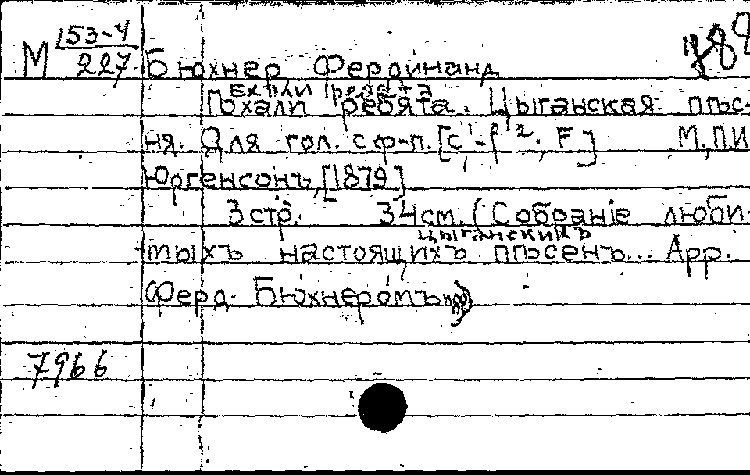 М 153-4
227
Бюхнер Фердинанд
Ехали ребята
Похали ребята. Цыганская пѣс-
ня. Для гол. с ф-п. [c¹-f², F] М, П.И.
Юргенсонъ, [1879]
3 стр. 34см. (Собранiе люби-
цыганскихъ
мыхъ настоящихъ пѣсенъ... Арр.
Ферд. Бюхнеромъ
7966